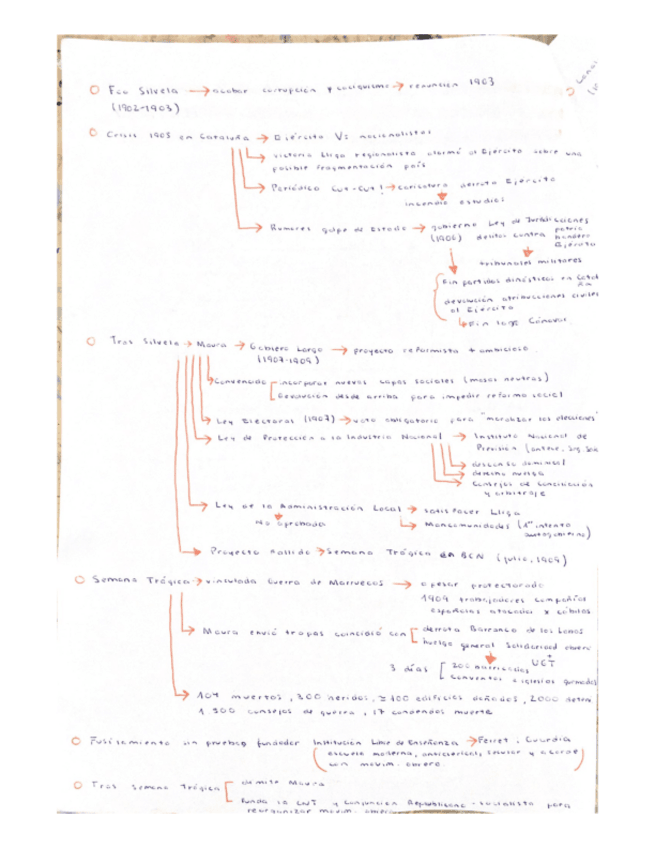 Fco Silvela → acabar corrupción y caciquismo → renuncian 1903
(1902-1903)
Crisis 1905 en Cataluña → Ejército Vs nacionalistas
victoria Lliga regionalista alarmó al Ejército sobre una
posible fragmentación país
Periódico Cut-Cut! → caricatura derrota Ejército
incendio estudios
Rumores golpe de Estado → gobierno Ley de Jurisdicciones
(1906) delitos contra patria
bandera
Ejército
tribunales militares
Fin partidos dinásticos en Catal
uña
devolución atribuciones civiles
al Ejército
Fin
Tras Silvela → Maura → Gobierno Largo → proyecto reformista + ambicioso
(1907-1909)
Convencido incorporar nuevas capas sociales (masas neutras)
Revolución desde arriba para impedir reforma social
Ley Electoral (1907) → voto obligatorio para "moralizar las elecciones"
Ley de Protección a la Industria Nacional → Instituto Nacional de
Previsión
descanso dominical
derecho huelga
Consejos de conciliación
y arbitraje
Ley de la Administración Local → satisfacer Lliga
No aprobada
Mancomunidades (1º intento
autogobierno)
Proyecto fallido → Semana Trágica en BCN (julio, 1909)
Semana Trágica → vinculada Guerra de Marruecos → a pesar protectorado
1909 trabajadores compañía
españolas atacada x cábilas
Maura envió tropas coincidió con derrota Barranco de los Lobos
huelga general Solidaridad obrera
+
UGT
3 días 200 barricadas
conventos e iglesias quemados
104 muertos, 300 heridos, ≥100 edificios dañados, 2000 deten
1.300 consejos de guerra, 17 condenados muerte
Fusilamiento sin pruebas fundador Institución Libre de Enseñanza → Ferret, Guardia
escuela moderna, anticlerical, secular y acorde
con movim. obrero
Tras Semana Trágica dimite Maura
Funda la CNT y Conjunción Republicano-socialista para
reorganizar movim. obrero